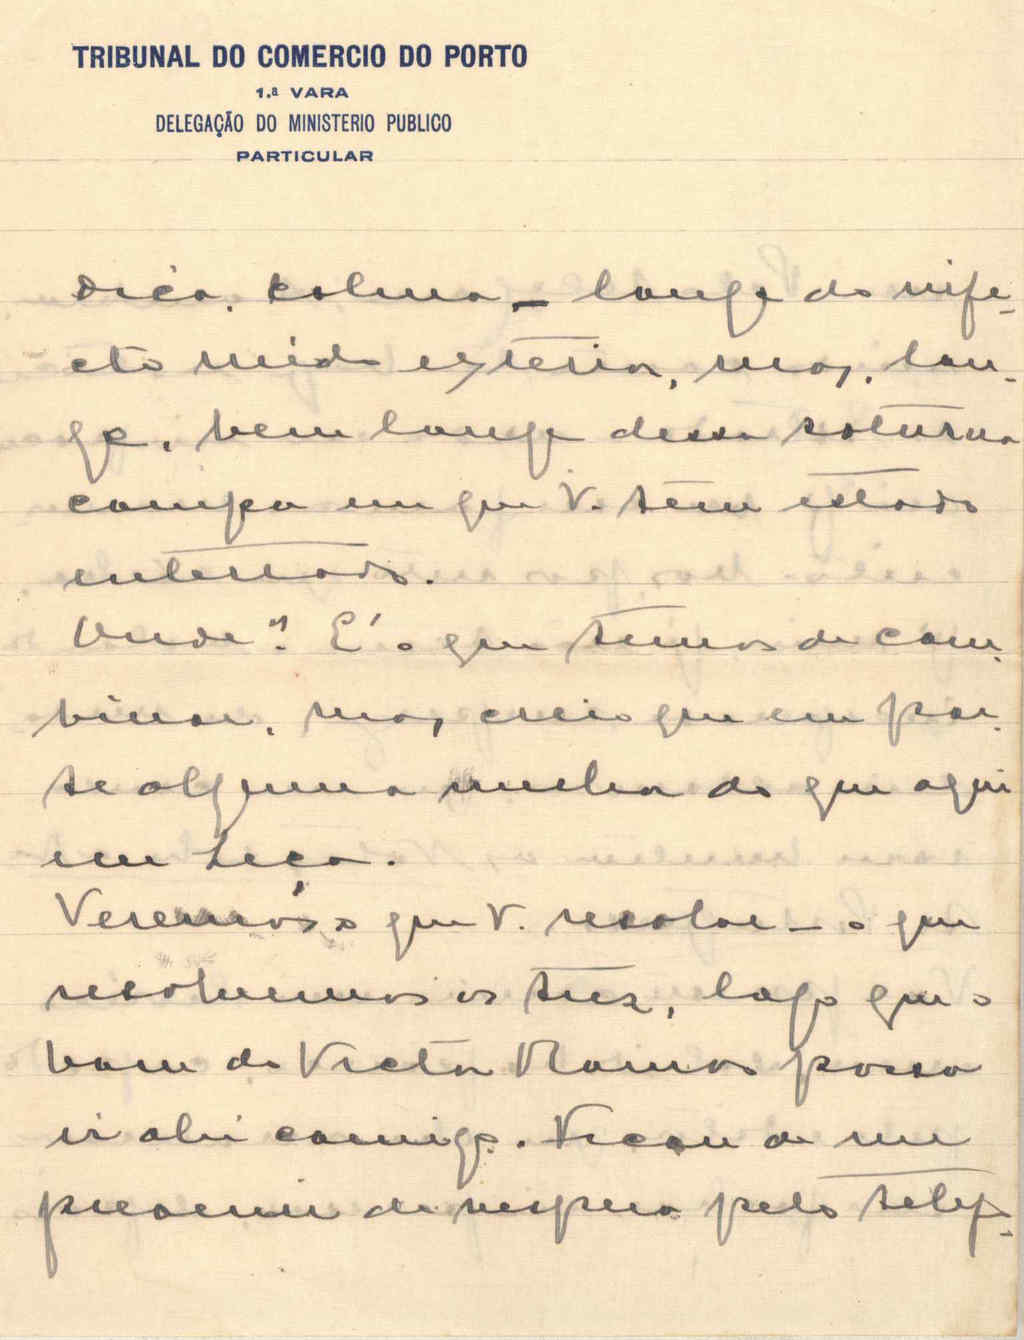 TRIBUNAL DO COMERCIO DO PORTO
1.ª VARA
DELEGAÇÃO DO MINISTERIO PUBLICO
PARTICULAR
dica. calma – longe do infe-
cto meio exterior, mas, lon-
ge, bem longe dessa soturna
campa em que V. tem estado
enterrado.
Onde? É o que temos de com-
binar, mas, creio que em par-
te alguma melhor do que aqui
em Leça.
Veremos o que V. resolve – o que
resolvemos os trez, logo que o
bom do Victor Ramos possa
ir ahi comigo. Ficou de me
prevenir de vespera pelo telef-